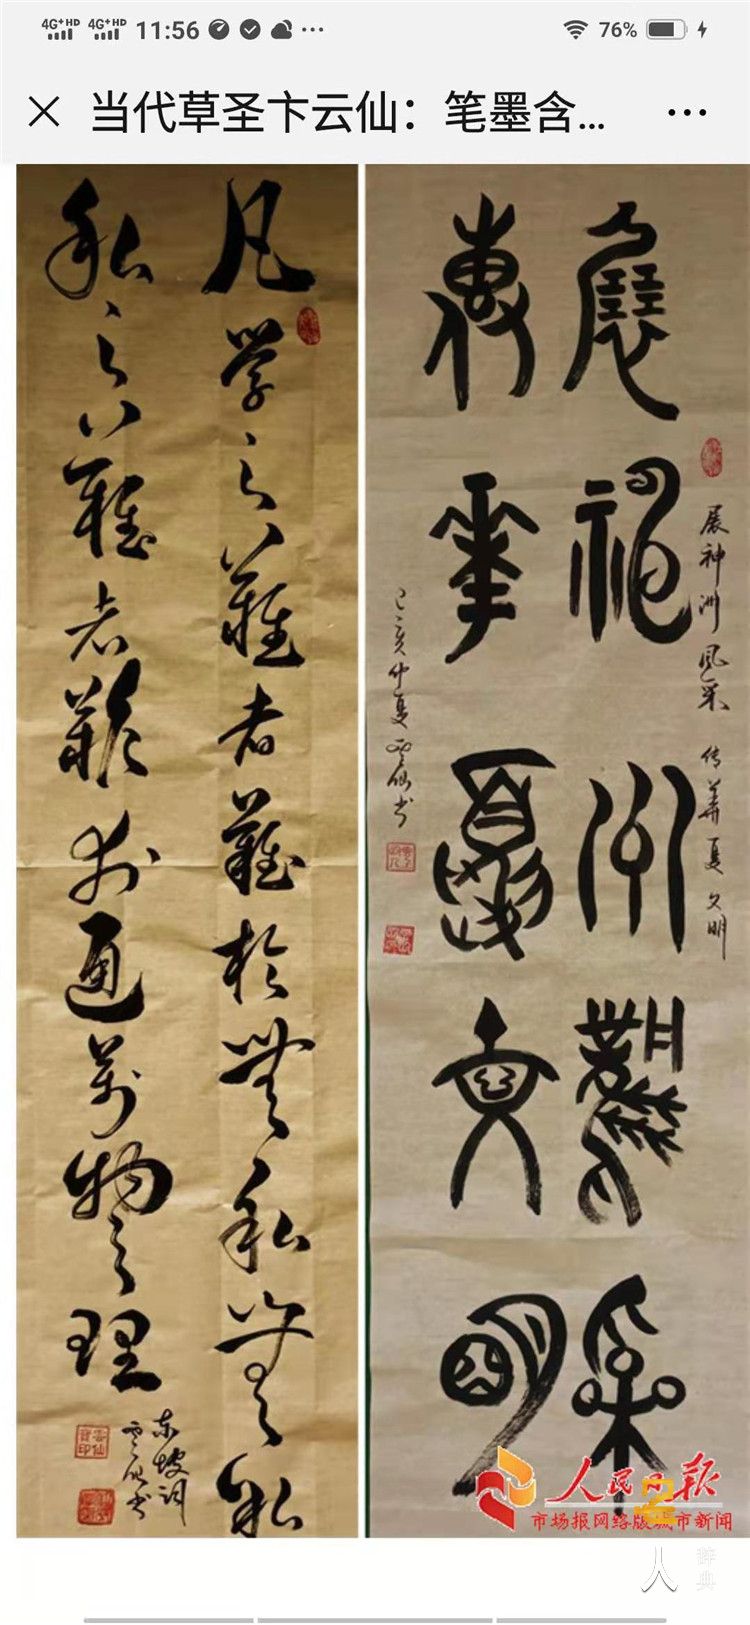 4G+HD 4G+HD 11:56 ··· 76%
× 当代草圣卞云仙：笔墨含... ···
凡学之难者难於無私無私
私之难者难於通万物之理
东坡词
云仙书
云仙宝印
展神洲風采
传華夏文明
展神洲風采 传華夏文明
己亥仲夏云仙书
人民日报
市场报网络版城市新闻
人
辞典